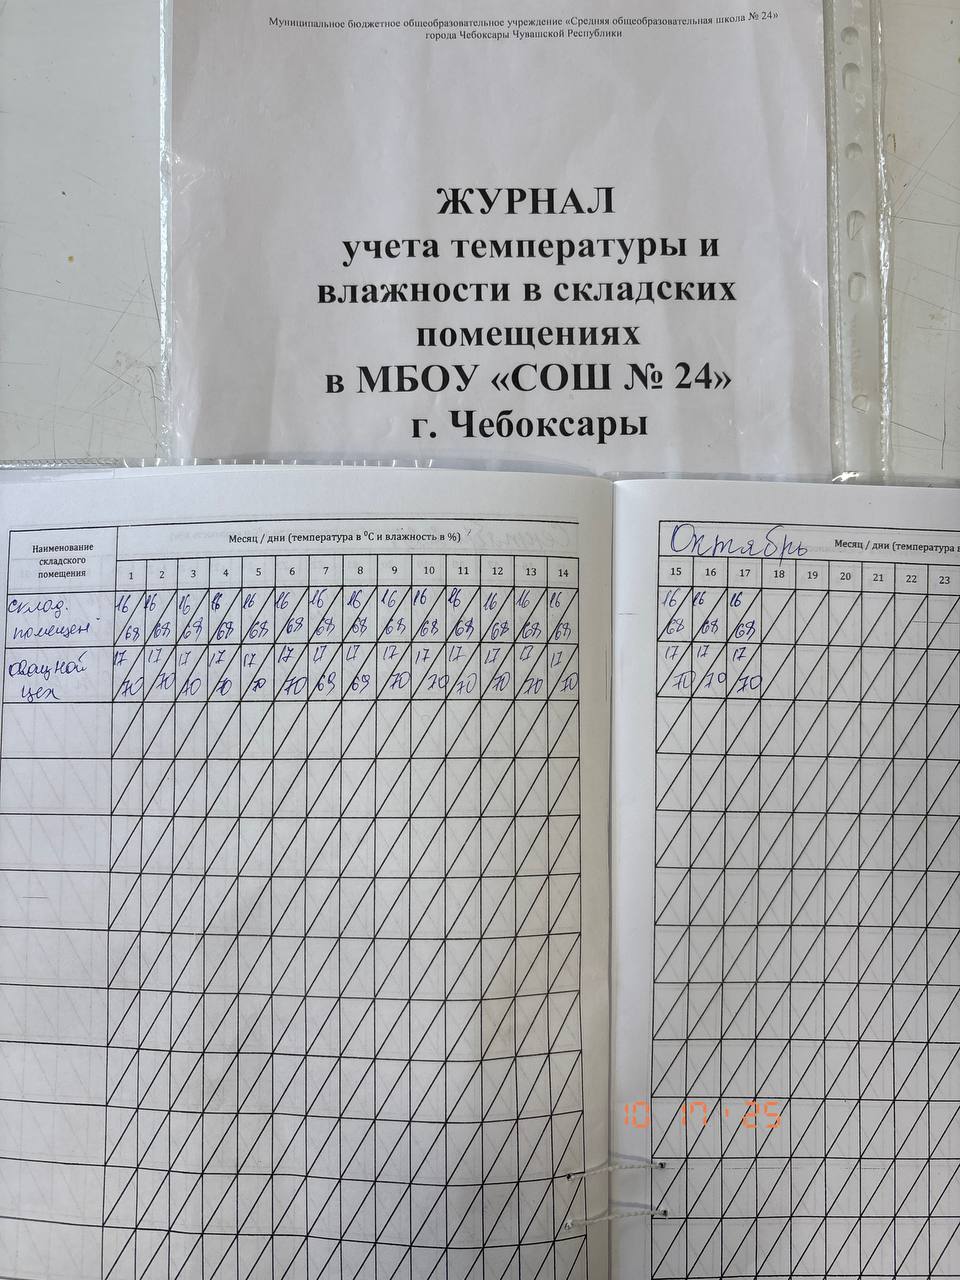 Муниципальное бюджетное общеобразовательное учреждение «Средняя общеобразовательная школа № 24»
города Чебоксары Чувашской Республики
ЖУРНАЛ
учета температуры и
влажности в складских
помещениях
в МБОУ «СОШ № 24»
г. Чебоксары
Наименование
складского
помещения
Месяц / дни (температура в ⁰С и влажность в %)
1 2 3 4 5 6 7 8 9 10 11 12 13 14
склад.
помещен
16 16 16 16 16 16 16 16 16 16 16 16 16 16
68 68 68 68 68 68 68 68 68 68 68 68 68 68
овощной
цех
17 17 17 17 17 17 17 17 17 17 17 17 17 17
70 70 70 70 70 70 69 69 70 70 70 70 70 70
Октябрь
Месяц / дни (температура в
15 16 17 18 19 20 21 22 23
16 16 16
68 68 68
17 17 17
70 70 70
10 17 ' 25